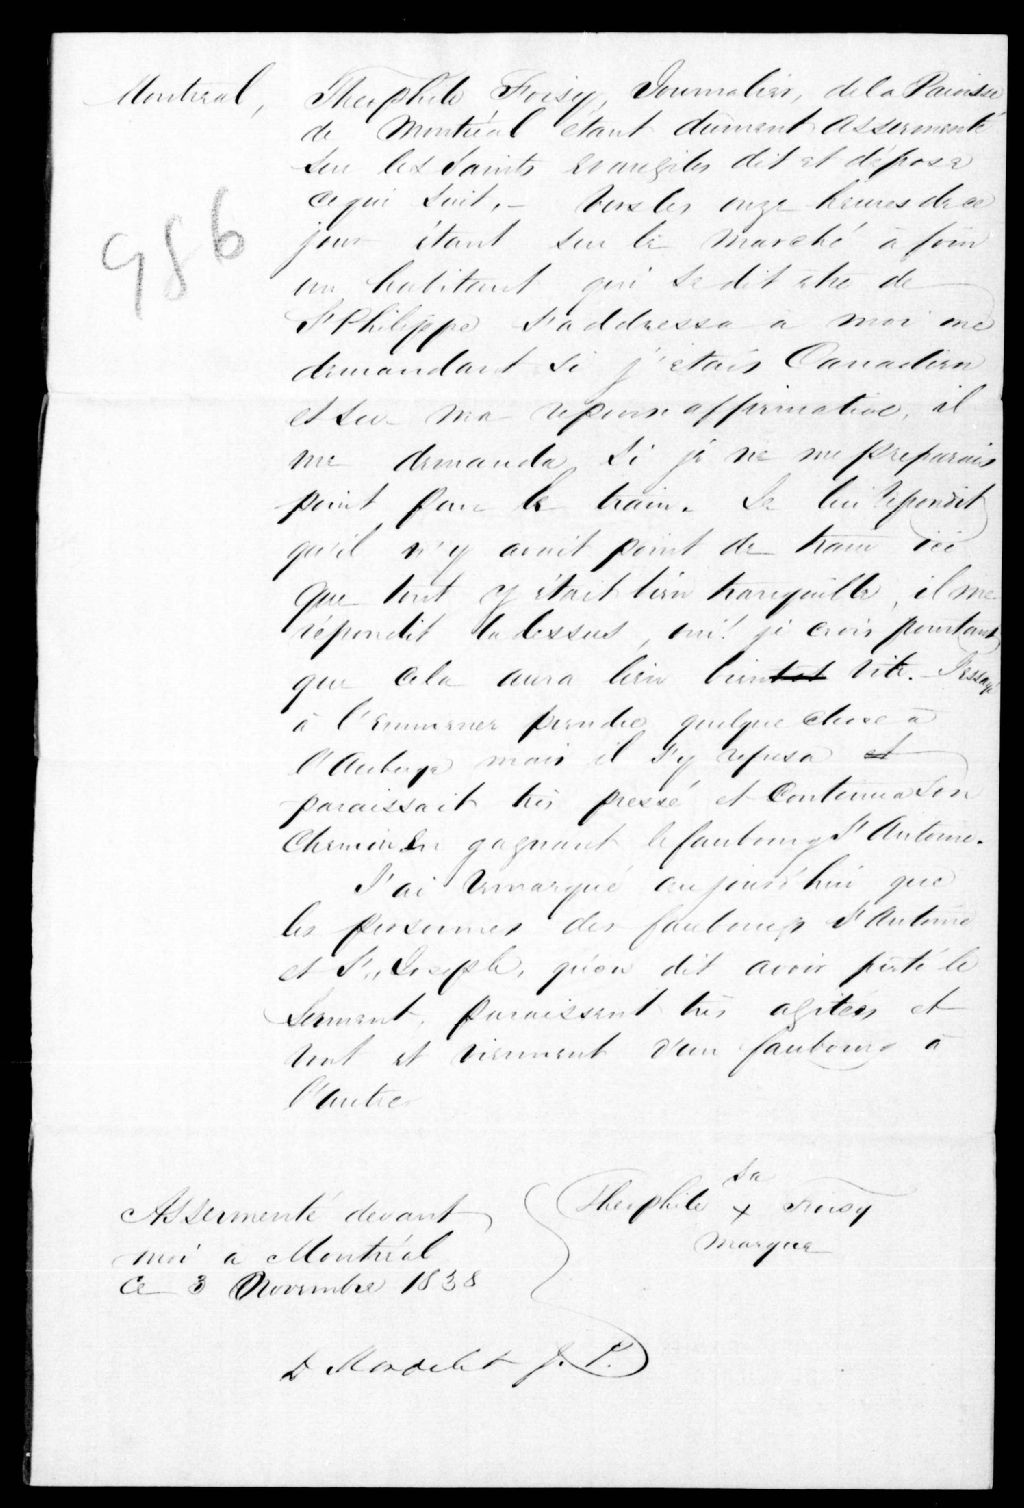 Montreal, Theophile Foisy, Journalier, de la Paroisse
de Montréal étant dument assermenté
Sur les Saints Evangiles dit et dépose
ce qui suit, – Vers les onze heures de ce
986
jour étant sur le marché à foin
un habitant qui se dit etre de
St Philippe s'addressa a moi me
demandant si j'etais Canadien
et sur ma reponse affirmative, il
me demanda si je ne me preparais
point pour le train. Je lui répondit
qu'il n'y avait point de train ici
que tout y était bien tranquille, il me
répondit la dessus, oui! je crois pourtant
que cela aura lieu bientot vite. J'essayé
à l'emmener prendre quelque chose à
l'Auberge mais il s'y refusa et
paraissait très pressé et Continua son
Chemin en gagnant le faubourg St Antoine.
J'ai remarqué aujourd'hui que
les personnes des faubourgs St Antoine
et St Joseph, qu'on dit avoir prêté le
Serment, paraissent très agités et
vont et viennent d'un faubourg à
l'autre
Assermenté devant
moi a Montréal
ce 3 Novembre 1838
Sa
Theophile x Foisy
marque
D Mondelet J. P.